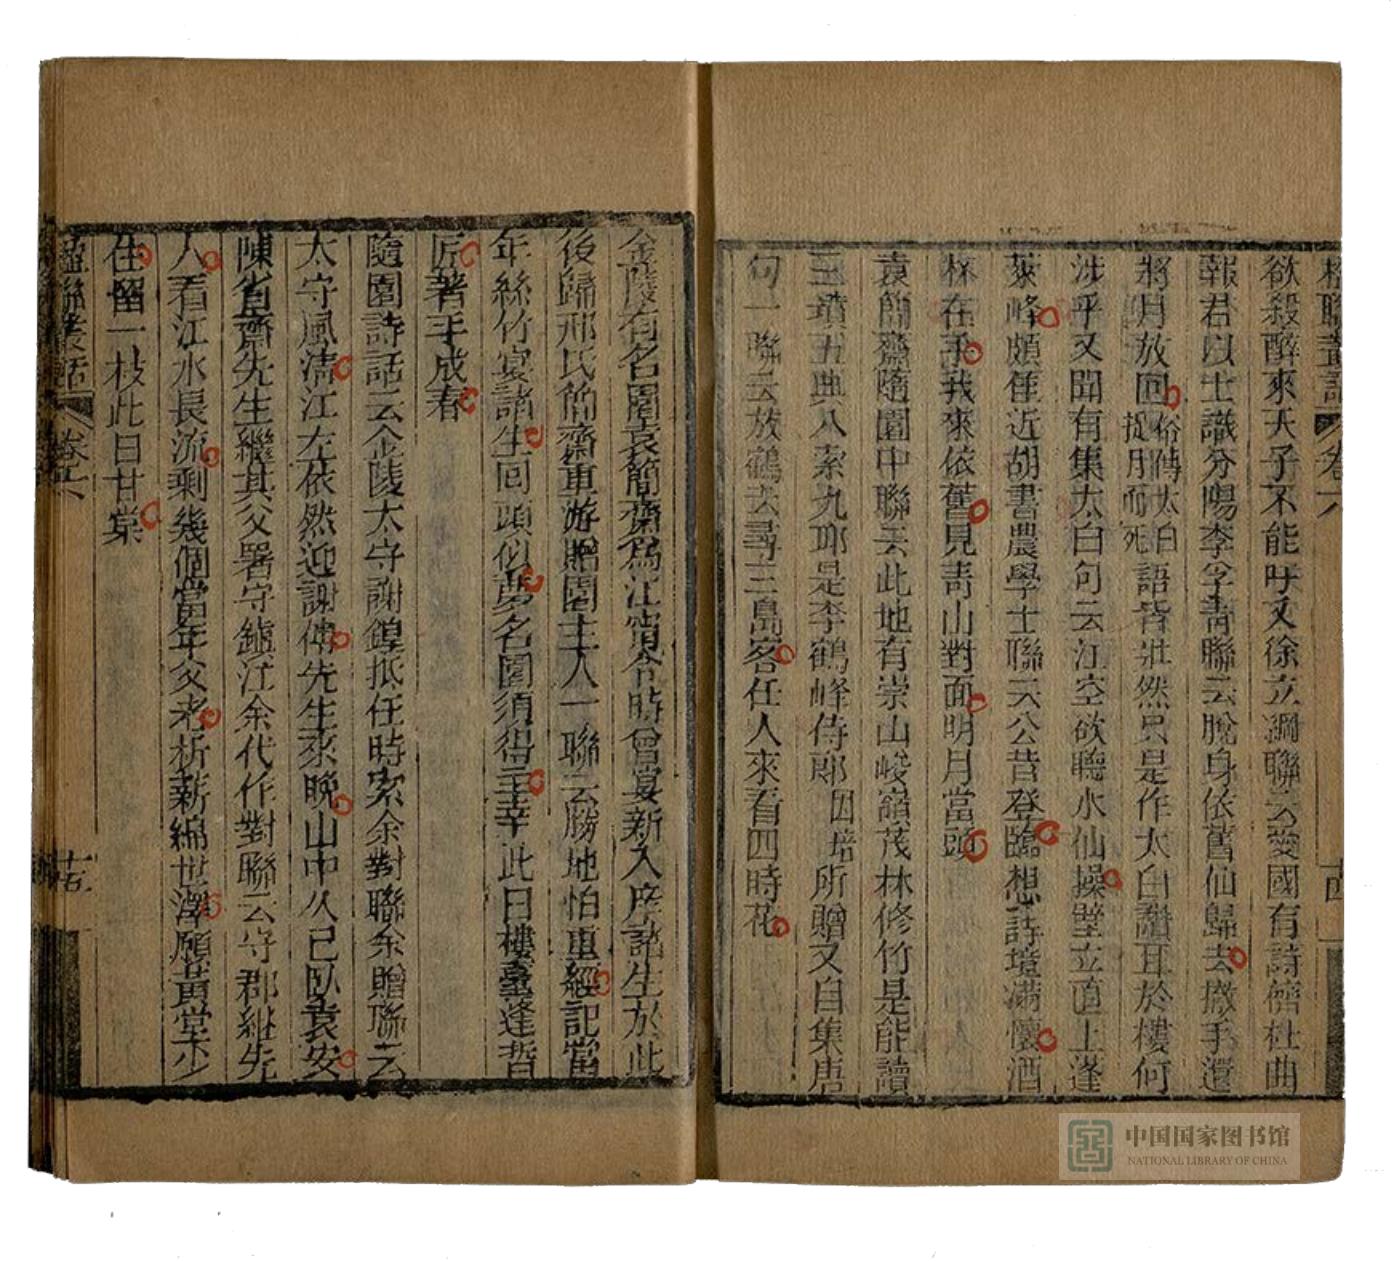 楹聯叢話 卷六 十四
欲殺醉來天子不能呼又徐立綱聯云愛國有詩儕杜曲
報君以士識汾陽李孚青聯云脫身依舊仙歸去撒手還
將月放回俗傳太白捉月而死語皆壯然只是作太白讚耳於樓何
涉乎又聞有集太白句云江空欲聽水仙操壁立直上蓬
萊峰頗佳近胡書農學士聯云公昔登臨想詩境滿懷酒
杯在手我來依舊見青山對面明月當頭
袁簡齋隨園中聯云此地有崇山峻嶺茂林修竹是能讀
三墳五典八索九邱是李鶴峰侍郎因培所贈又自集唐
句一聯云放鶴去尋三島客任人來看四時花
金陵有名園袁簡齋爲江寧令時曾宴新入庠諸生於此
後歸邢氏簡齋重游贈園主人一聯云勝地怕重經記當
年絲竹宴諸生回頭似夢名園須得主幸此日樓臺逢哲
匠著手成春
隨園詩話云金陵太守謝鍠抵任時索余對聯余贈聯云
太守風清江左依然迎謝傅先生來晚山中久已臥袁安
陳省齋先生繼其父署守鎮江余代作對聯云守郡繼先
人看江水長流剩幾個當年父老析薪綿世澤願黃堂少
住留一枝此日甘棠
楹聯叢話 卷六 十五
中国国家图书馆
NATIONAL LIBRARY OF CHINA